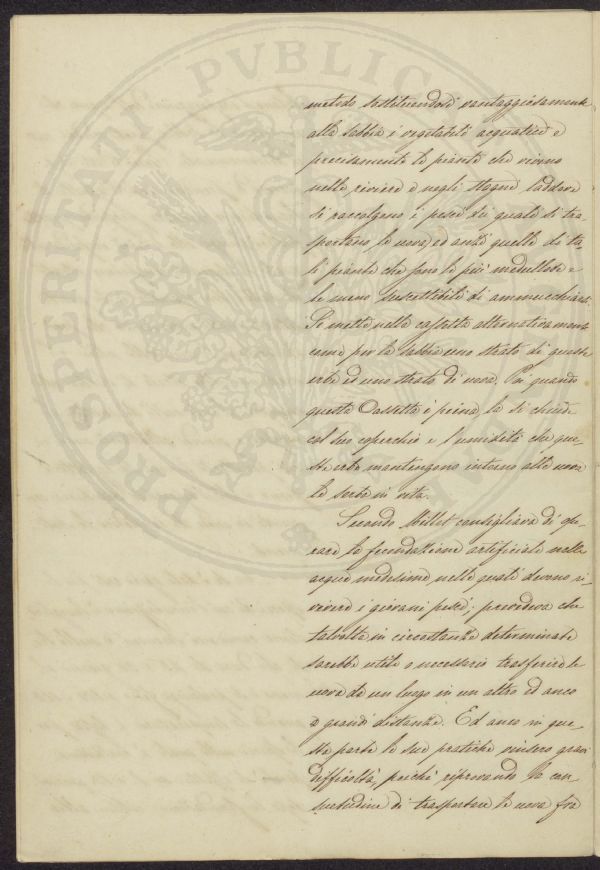 PROSPERITATI PVBLICAE
metodo sostituendosi vantaggiosamente
alla sabbia i vegetabili acquatici e
precisamente le piante che vivono
nelle riviere e negli stagni laddove
si raccolgono i pesci di quali si tra-
sportano le uova, ed anzi quelle di ta-
li piante che sono le più midollose e
le meno suscettibili di ammucchiarsi.
Si mette nella cassetta alternativamente
come per la sabbia uno strato di queste
erbe ed uno strato di uova. Poi quando
questa Cassetta è piena, la si chiude
col suo coperchio e l'umidità che que-
ste erbe mantengono intorno alle uova
le serba in vita.
Secondo Millet consigliava di ope-
rare la fecondazione artificiale nelle
acque medesime nelle quali devono ri-
vivere i giovani pesci; prevedeva che
talvolta in circostanze determinate
sarebbe utile o necessario trasferire le
uova da un luogo in un altro ed anco
a grandi distanze. Ed anco in que-
sta parte le sue pratiche vinsero gravi
difficoltà, poiché riprovando la con-
suetudine di trasportare le uova fra